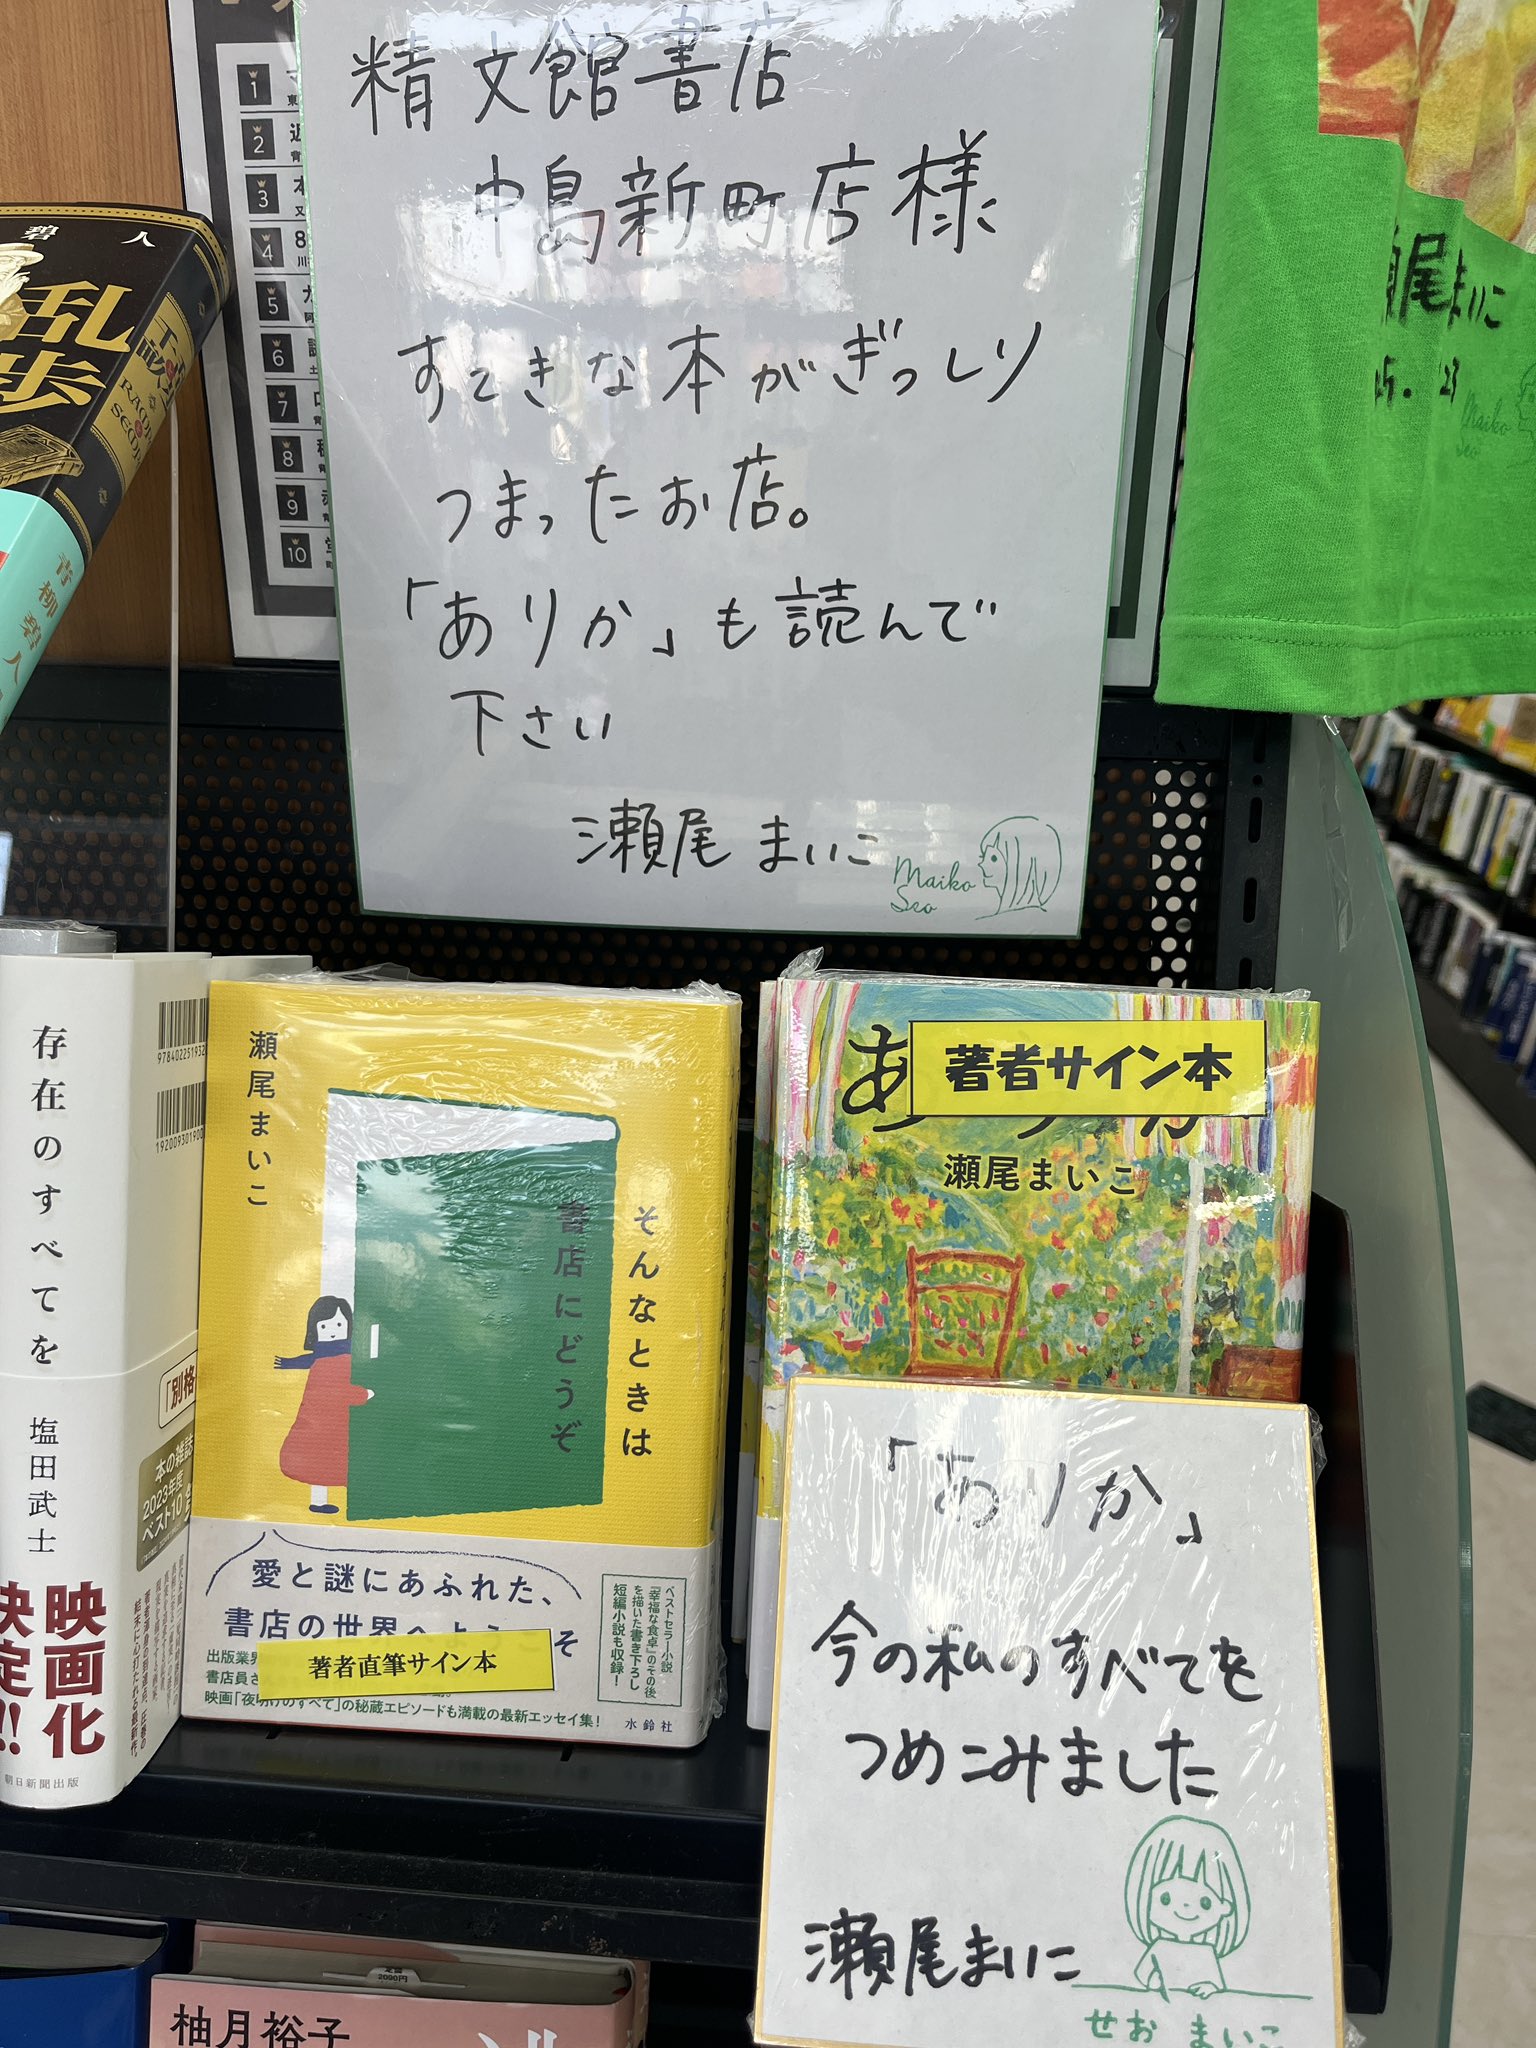 精文館書店
中島新町店様
すてきな本がぎっしり
つまったお店。
「ありか」も読んで
下さい
瀬尾まいこ
Maiko
Seo
1
2
3
4
5
6
7
8
9
10
碧人
乱歩
RAMPO
青柳碧人
瀬尾まいこ
Maiko
Seo
存在のすべてを
塩田武士
映画化
決定!!
朝日新聞出版
本の雑誌
2023年度
ベスト10
瀬尾まいこ
そんなときは
書店にどうぞ
愛と謎にあふれた、
書店の世界へようこそ
出版業界
書店員さ
著者直筆サイン本
映画『夜明けのすべて』の秘蔵エピソードも満載の最新エッセイ集!
ベストセラー小説
『幸福な食卓』のその後
を描いた書き下ろし
短編小説も収録!
水鈴社
著者サイン本
瀬尾まいこ
「ありか」
今の私のすべてを
つめこみました
瀬尾まいこ
せお まいこ
定価
2090円
柚月裕子